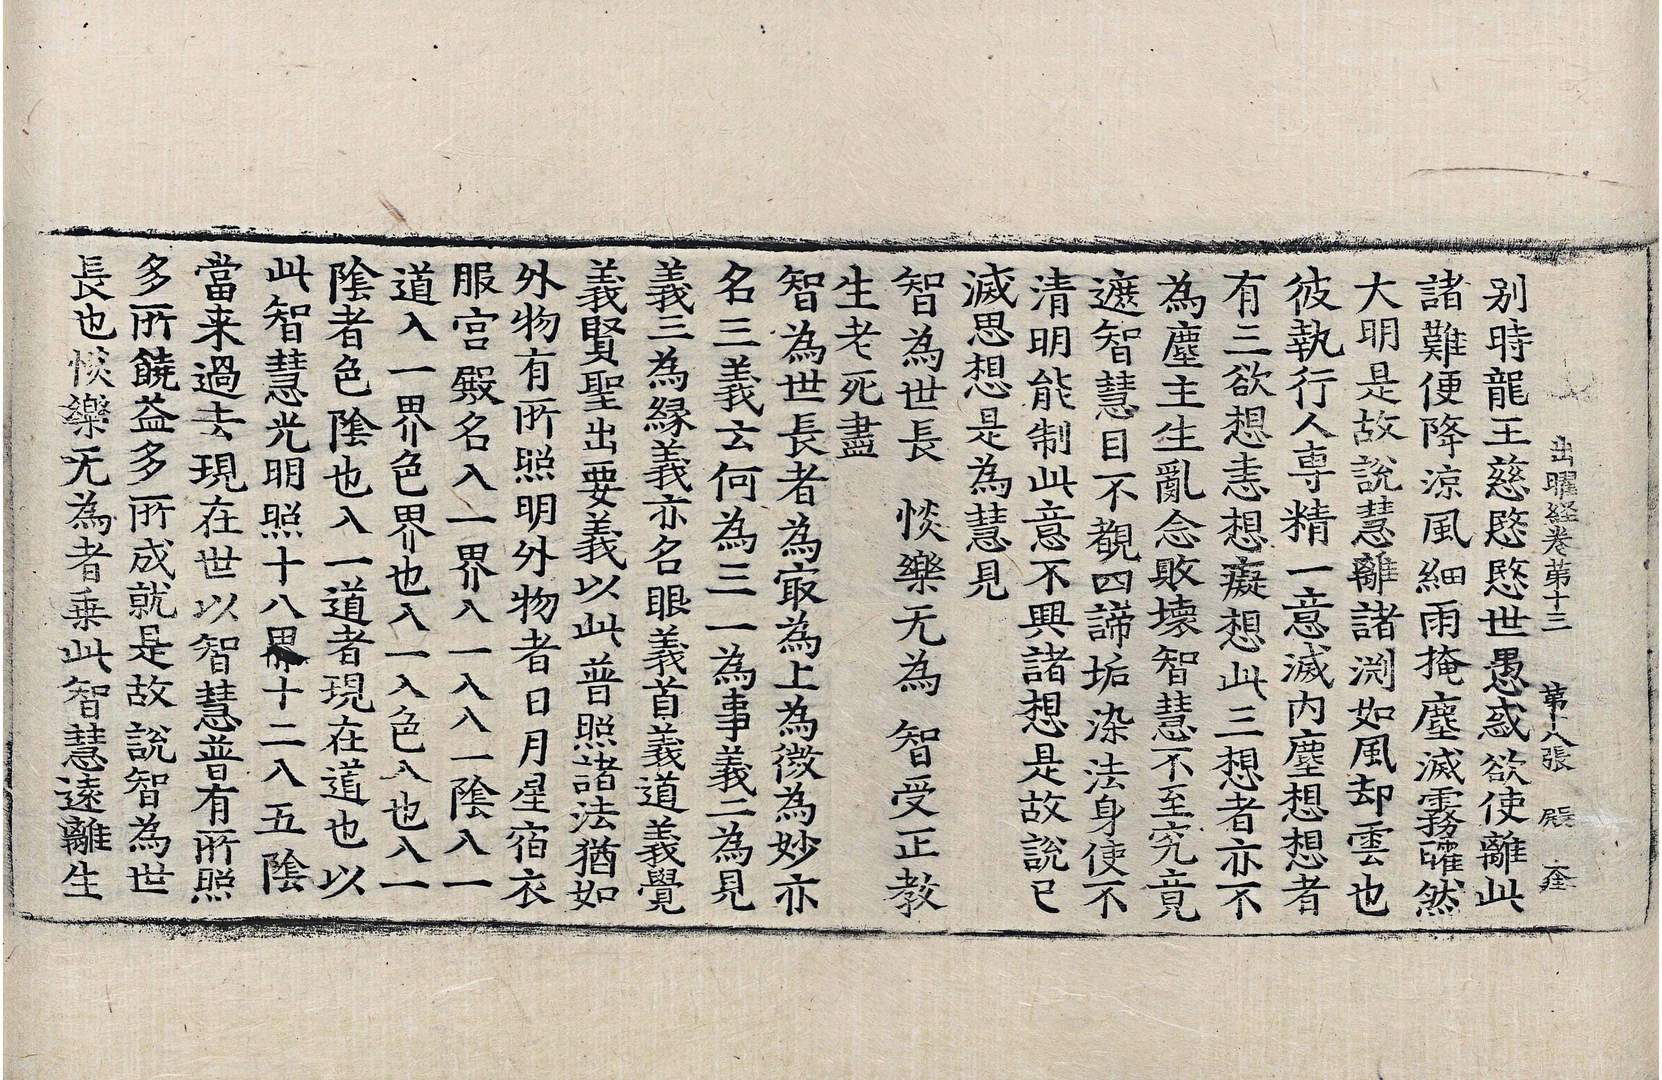 出曜経卷第十三 第十八張 殿
别時龍王慈愍愍世愚惑欲使離此
諸難便降涼風細雨掩塵滅霧㬦然
大明是故説慧離諸渕如風却雲也
彼執行人専精一意滅内塵想想者
有三欲想恚想癡想此三想者亦不
為塵主生亂念敗壊智慧不至究竟
遮智慧目不覩四諦垢染法身使不
清明能制此意不興諸想是故説已
滅思想是為慧見
智為世長 惔樂无為 智受正教
生老死盡
智為世長者為㝡為上為微為妙亦
名三義云何為三一為事義二為見
義三為縁義亦名眼義首義道義覺
義賢聖出要義以此普照諸法猶如
外物有所照明外物者日月星宿衣
服宫殿名入一界入一入入一陰入一
道入一界色界也入一入色入也入一
陰者色陰也入一道者現在道也以
此智慧光明照十八界十二入五陰
當来過去現在世以智慧普有所照
多所饒益多所成就是故説智為世
長也惔樂无為者乗此智慧遠離生